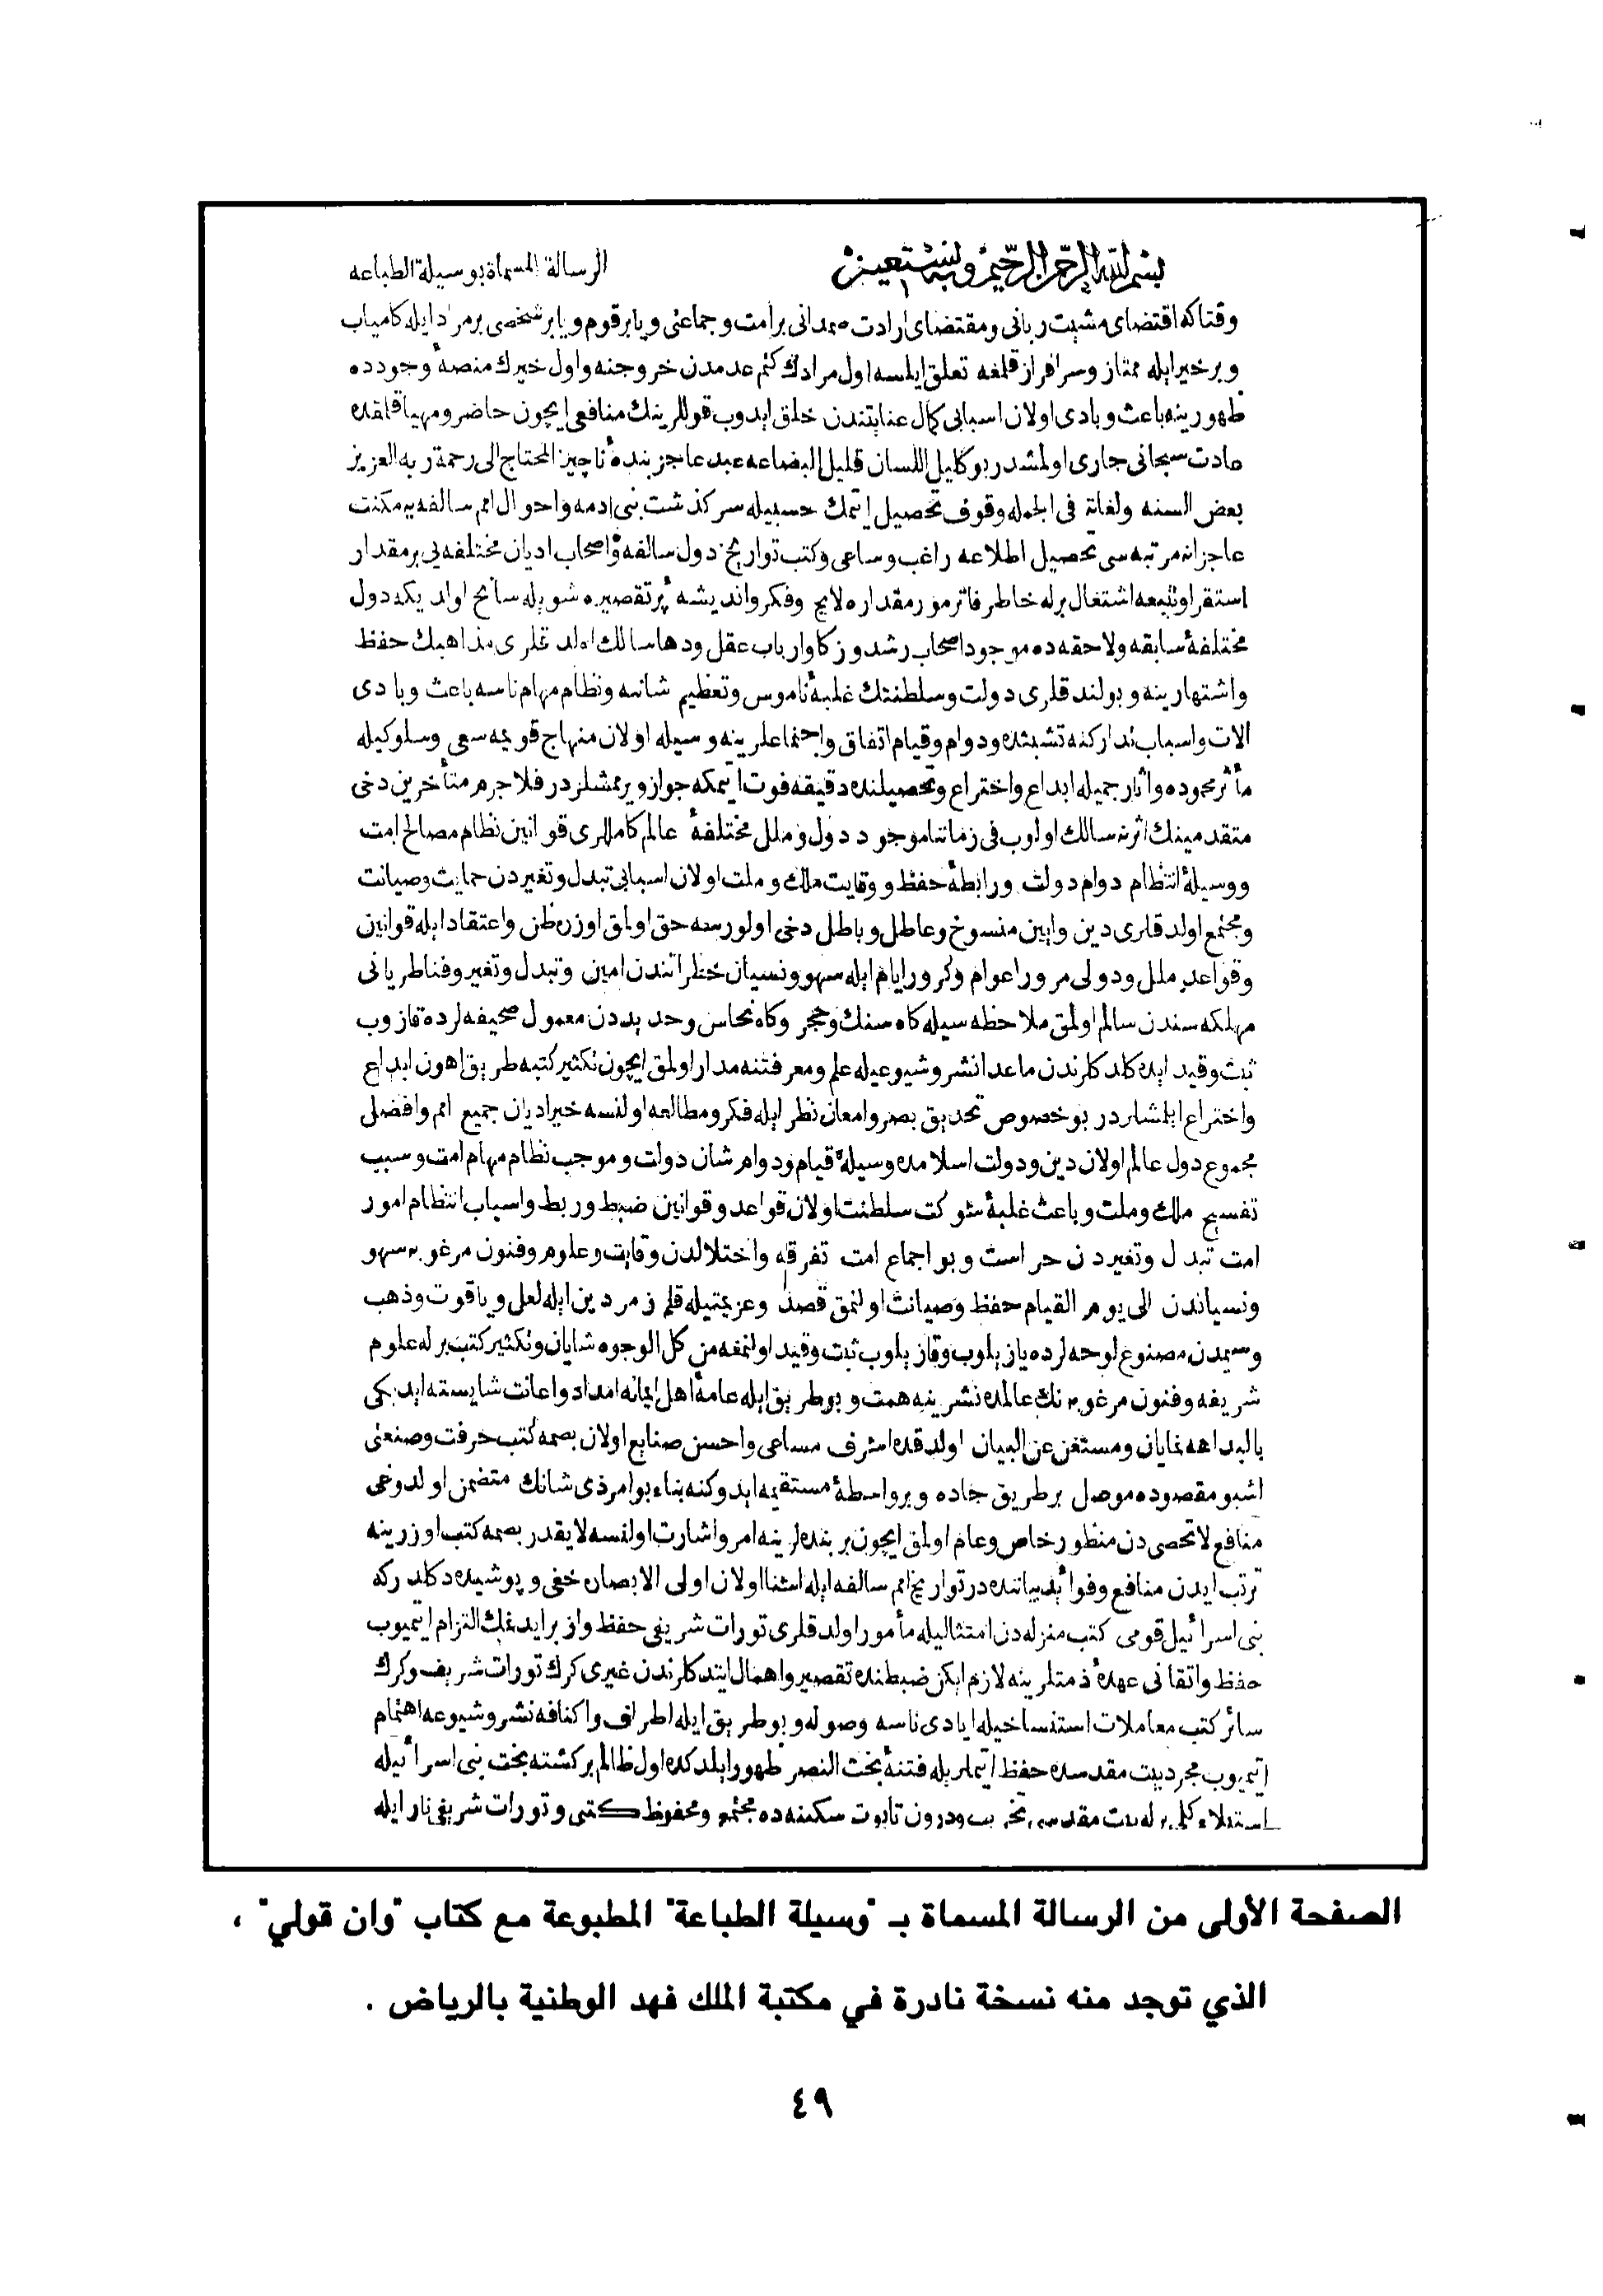 بسم الله الرحمن الرحيم وبه نستعين
الرسالة المسماة بوسيلة الطباعه
وقتاكه اقتضاى مشيت ربانى ومقتضاى ارادت صمدانى برامت وجماعتى ويا برقوم ويا برشخصى برمراد ايله كامياب
وبرخير ايله ممتاز وسرافراز قلمغه تعلق ايلسه اول مرادك كتم عدمدن خروجنه واول خيرك منصهٔ وجودده
ظهورينه باعث وبادى اولان اسبابى كمال عنايتندن خلق ايدوب قوللرينك منافعى ايچون حاضر ومهيا قلقده
عادت سبحانى جارى اولمشدر بو كليل اللسان قليل البضاعه عبد عاجز بندهٔ ناچيز المحتاج الى رحمة ربه العزيز
بعض السنه ولغاته فى الجمله وقوف تحصيل اتمك حسبيله سركذشت بنى ادمه واحوال امم سالفه يه مكنت
عاجزانه مرتبه سى تحصيل اطلاعه راغب وساعى وكتب تواريخ دول سالفه واصحاب اديان مختلفه يى برمقدار
استقرا وتتبعه اشتغال برله خاطر فاتر مور مقداره لايح وفكر وانديشه پر تقصيره شويله سانح اولديكه دول
مختلفهٔ سابقه ولاحقه ده موجود اصحاب رشد وزكا وارباب عقل ودها سالك اولدقلرى مذاهبك حفظ
واشتهارينه وبولندقلرى دولت وسلطنتك غلبهٔ ناموس وتعظيم شانه ونظام مهام ناسه باعث وبادى
الات واسباب تداركنه تشبثده ودوام وقيام اتفاق واجتماعلرينه وسيله اولان منهاج قويمه سعى وسلوكيله
مأثر محموده واثار جميله ابداع واختراع وتحصيلنده دقيقه فوت اتمكه جواز ويرممشلردر فلا جرم متأخرين دخى
متقدمينك اثرنه سالك اولوب فى زماننا موجود دول وملل مختلفهٔ عالم كاملرى قوانين نظام مصالح امت
ووسيلهٔ انتظام دوام دولت ورابطهٔ حفظ ووقايت ملك وملت اولان اسبابى تبدل وتغيردن حمايت وصيانت
ومجتمع اولدقلرى دين وايين منسوخ وعاطل وباطل دخى اولورسه حق اولمق اوزره ظن واعتقاد ايله قوانين
وقواعد ملل ودولى مرور اعوام وكرور ايام ايله سهو ونسيان خطراتندن امين وتبدل وتغير وفنا طريانى
مهلكه سندن سالم اولمق ملاحظه سيله كاه سنك وحجر وكاه نحاس وحديددن معمول صحيفه لرده قازوب
ثبت وقيد ايده كلدكلرندن ماعدا نشر وشيوعيله علم ومعرفتنه مدار اولمق ايچون تكثير كتبه طريق اهون ابداع
واختراع ايلمشلردر بو خصوص تحديق بصر وامعان نظر ايله فكر ومطالعه اولنسه خير اديان جميع امم وافضل
مجموع دول عالم اولان دين ودولت اسلامده وسيلهٔ قيام ودوام شان دولت وموجب نظام مهام امت وسبب
تفسيح ملك وملت وباعث غلبهٔ شوكت سلطنت اولان قواعد وقوانين ضبط وربط واسباب انتظام امور
امت تبدل وتغيردن حراست وبو اجماع امت تفرقه واختلالدن وقايت وعلوم وفنون مرغوبه سهو
ونسياندن الى يوم القيام حفظ وصيانت اولنمق قصد وعزيمتيله قلم زمردين ايله لعل وياقوت وذهب
وسيمدن مصنوع لوحه لرده يازيلوب وقازيلوب ثبت وقيد اولنمغه من كل الوجوه شايان وتكثير كتب برله علوم
شريفه وفنون مرغوبه نك عالمده نشرينه همت وبو طريق ايله عامهٔ اهل ايمانه امداد واعانت شايسته ايديكى
بالبداهه نمايان ومستغن عن البيان اولدقده اشرف مساعى واحسن صنايع اولان بصمه كتب حرفت وصنعتى
اشبو مقصوده موصل بر طريق جاده وبر واسطهٔ مستقيمه ايدوكنه بناء بو امر ذى شانك متضمن اولدوغى
منافع لا تحصى دن منظور خاص وعام اولمق ايچون بربنده لرينه امر واشارت اولنسه لا يقدر بصمه كتب اوزرينه
ترتب ايدن منافع وفوائد بياننده در تواريخ امم سالفه ايله اشنا اولان اولى الابصاره خفى وپوشيده دكلدركه
بنى اسرائيل قومى كتب منزله دن امتثاليله مأمور اولدقلرى تورات شريفى حفظ وازبر ايدنمك التزام اتميوب
حفظ واتقانى عهدهٔ ذمتلرينه لازم ايكن ضبطنده تقصير واهمال ايتدكلرندن غيرى كرك تورات شريف وكرك
سائر كتب معاملات استنساخيله ايادى ناسه وصوله وبو طريق ايله اطراف واكنافه نشر وشيوعه اهتمام
اتميوب مجرد بيت مقدسده حفظ اتمريله فتنهٔ بخت النصر ظهور ايلدكده اول ظالم بركشته بخت بنى اسرائيله
استيلاء كلى برله بيت مقدسى تخريب ودرون تابوت سكينه ده مجتمع ومحفوظ كتبى وتورات شريفى نار ايله
الصفحة الأولى من الرسالة المسماة بـ "وسيلة الطباعة" المطبوعة مع كتاب "وان قولي" ،
الذي توجد منه نسخة نادرة في مكتبة الملك فهد الوطنية بالرياض .
٤٩